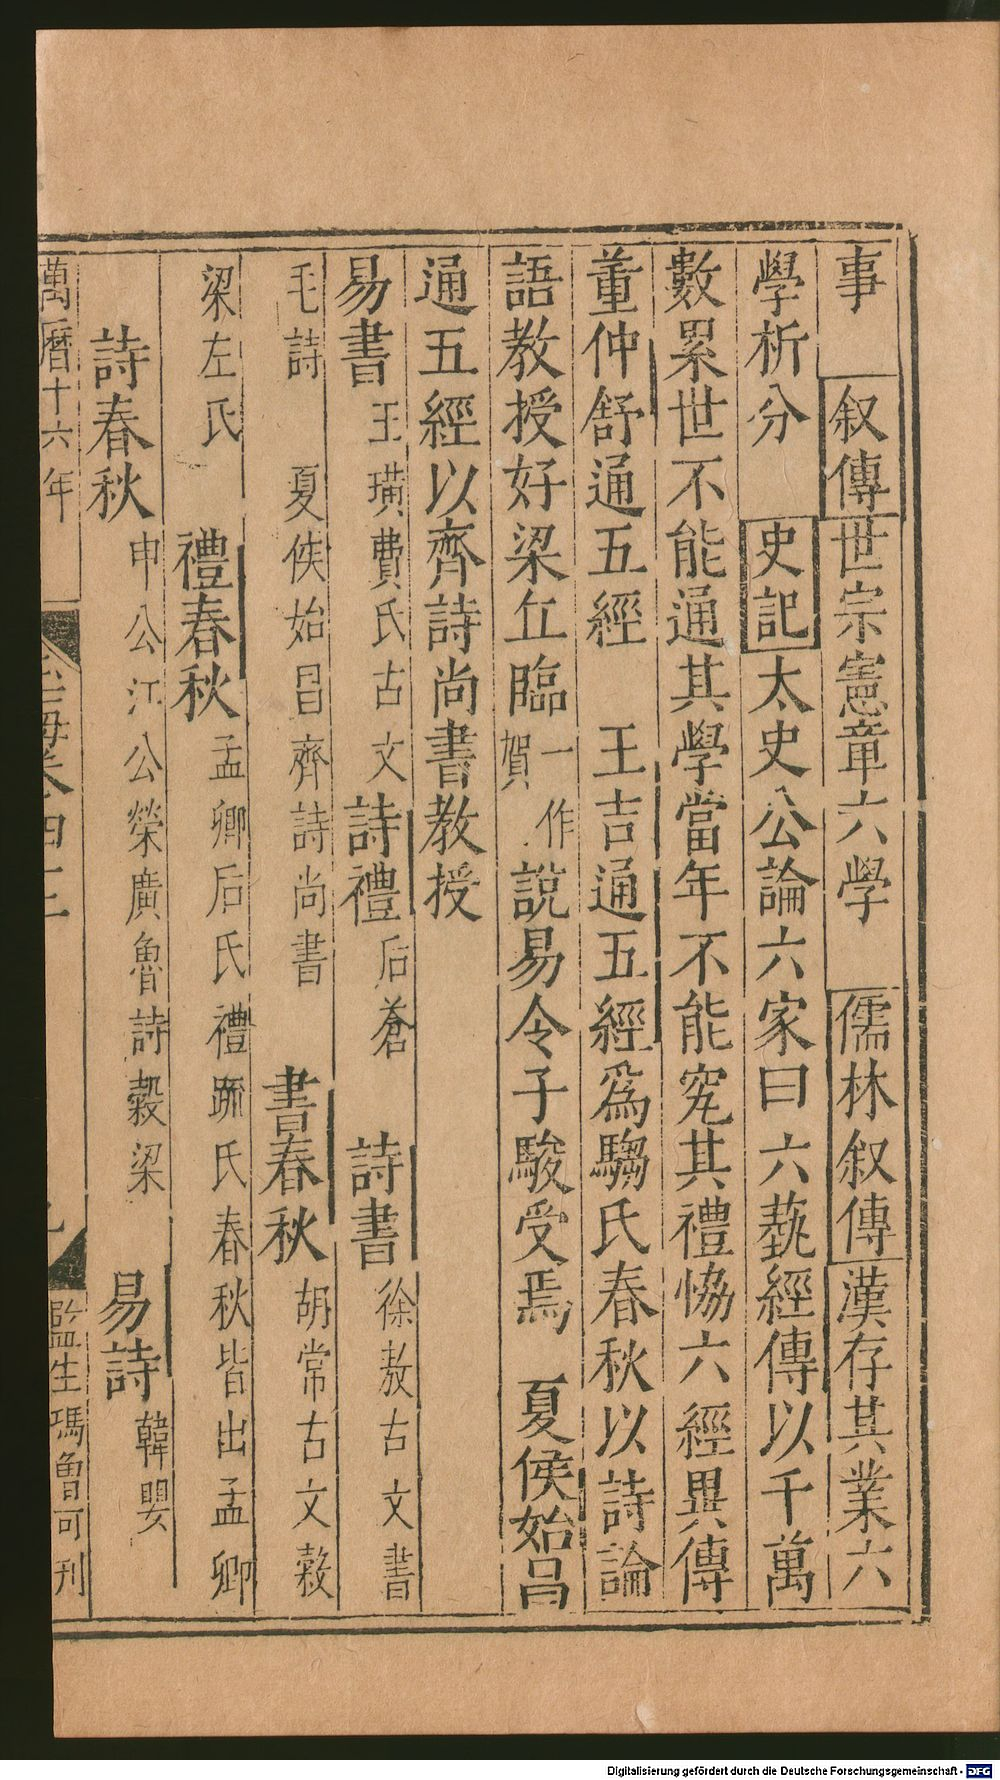 事　叙傳世宗憲章六學　儒林叙傳漢存其業六
學析分　史記太史公論六家曰六蓺經傳以千萬
數累世不能通其學當年不能究其禮恊六經異傳
董仲舒通五經　王吉通五經爲騶氏春秋以詩論
語教授好梁丘臨一作賀說易令子駿受焉　夏侯始昌
通五經以齊詩尚書教授
易書王璜費氏古文詩禮后蒼　詩書徐敖古文書
毛詩　夏侯始昌齊詩尚書　書春秋胡常古文穀
梁左氏　禮春秋孟卿后氏禮䟽氏春秋皆出孟卿
詩春秋申公江公榮廣魯詩穀梁　易詩韓嬰
萬曆十六年
監生馮魯可刊
Digitalisierung gefördert durch die Deutsche Forschungsgemeinschaft - DFG